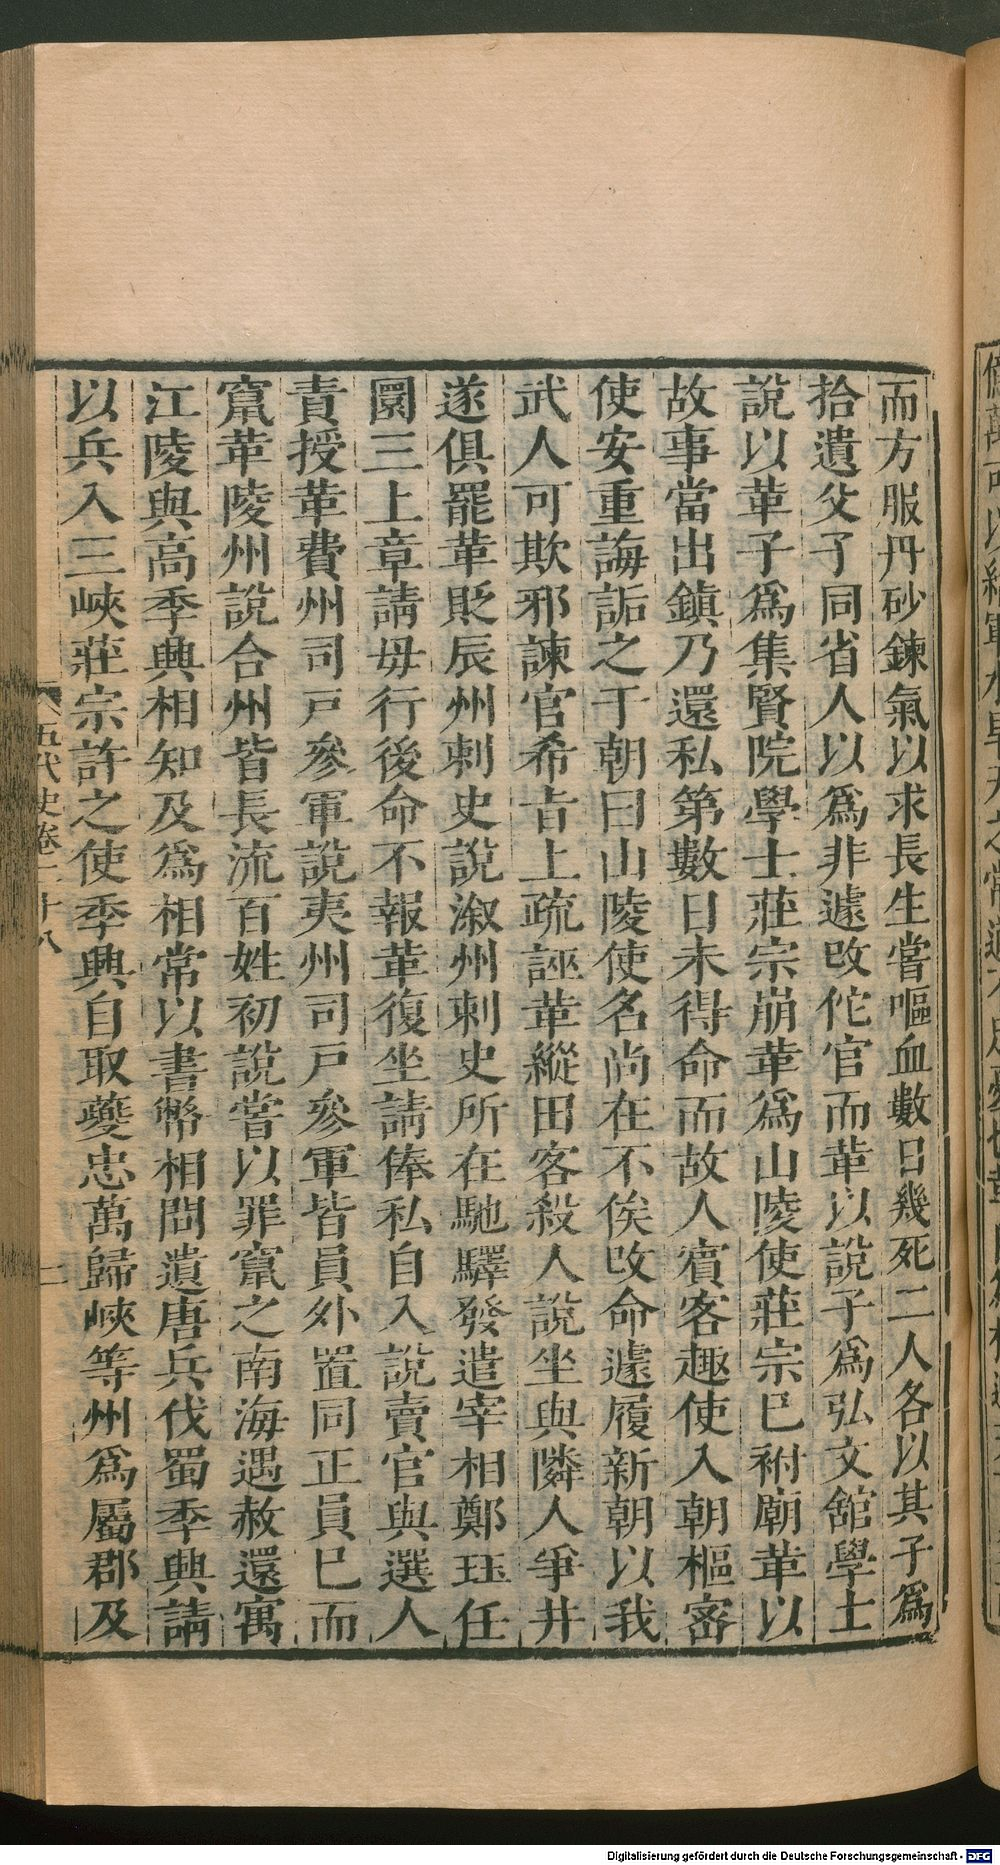 而方服丹砂鍊氣以求長生嘗嘔血數日幾死二人各以其子爲
拾遺父子同省人以爲非遽改佗官而革以說子爲弘文舘學士
說以革子爲集賢院學士莊宗崩革爲山陵使莊宗已祔廟革以
故事當出鎮乃還私第數日未得命而故人賓客趣使入朝樞密
使安重誨詬之于朝曰山陵使名尚在不俟改命遽履新朝以我
武人可欺邪諫官希旨上疏誣革縱田客殺人說坐與隣人爭井
遂俱罷革貶辰州刺史說溆州刺史所在馳驛發遣宰相鄭珏任
圜三上章請毋行後命不報革復坐請俸私自入說賣官與選人
責授革費州司戶參軍說夷州司戶參軍皆員外置同正員已而
竄革陵州說合州皆長流百姓初說嘗以罪竄之南海遇赦還寓
江陵與高季興相知及爲相常以書幣相問遺唐兵伐蜀季興請
以兵入三峽莊宗許之使季興自取夔忠萬歸峽等州爲屬郡及
五代史卷二十八
Digitalisierung gefördert durch die Deutsche Forschungsgemeinschaft - DFG